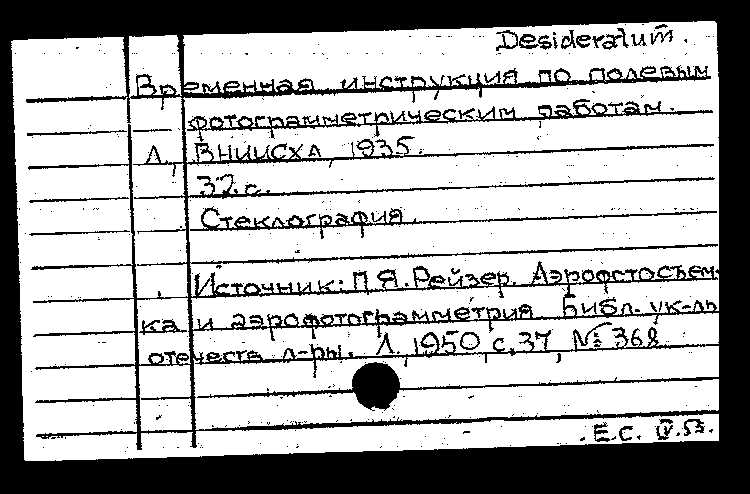 Desideratum.
Временная инструкция по полевым
фотограмметрическим работам.
Л., ВНИИСХЛ, 1935.
32 с.
Стеклография.
Источник: П.Я. Рейзер. Аэрофотосъем-
ка и аэрофотограмметрия. Библ. ук-ль
отечеств. л-ры. Л., 1950, с. 37, № 368
Е.С. IV.53.